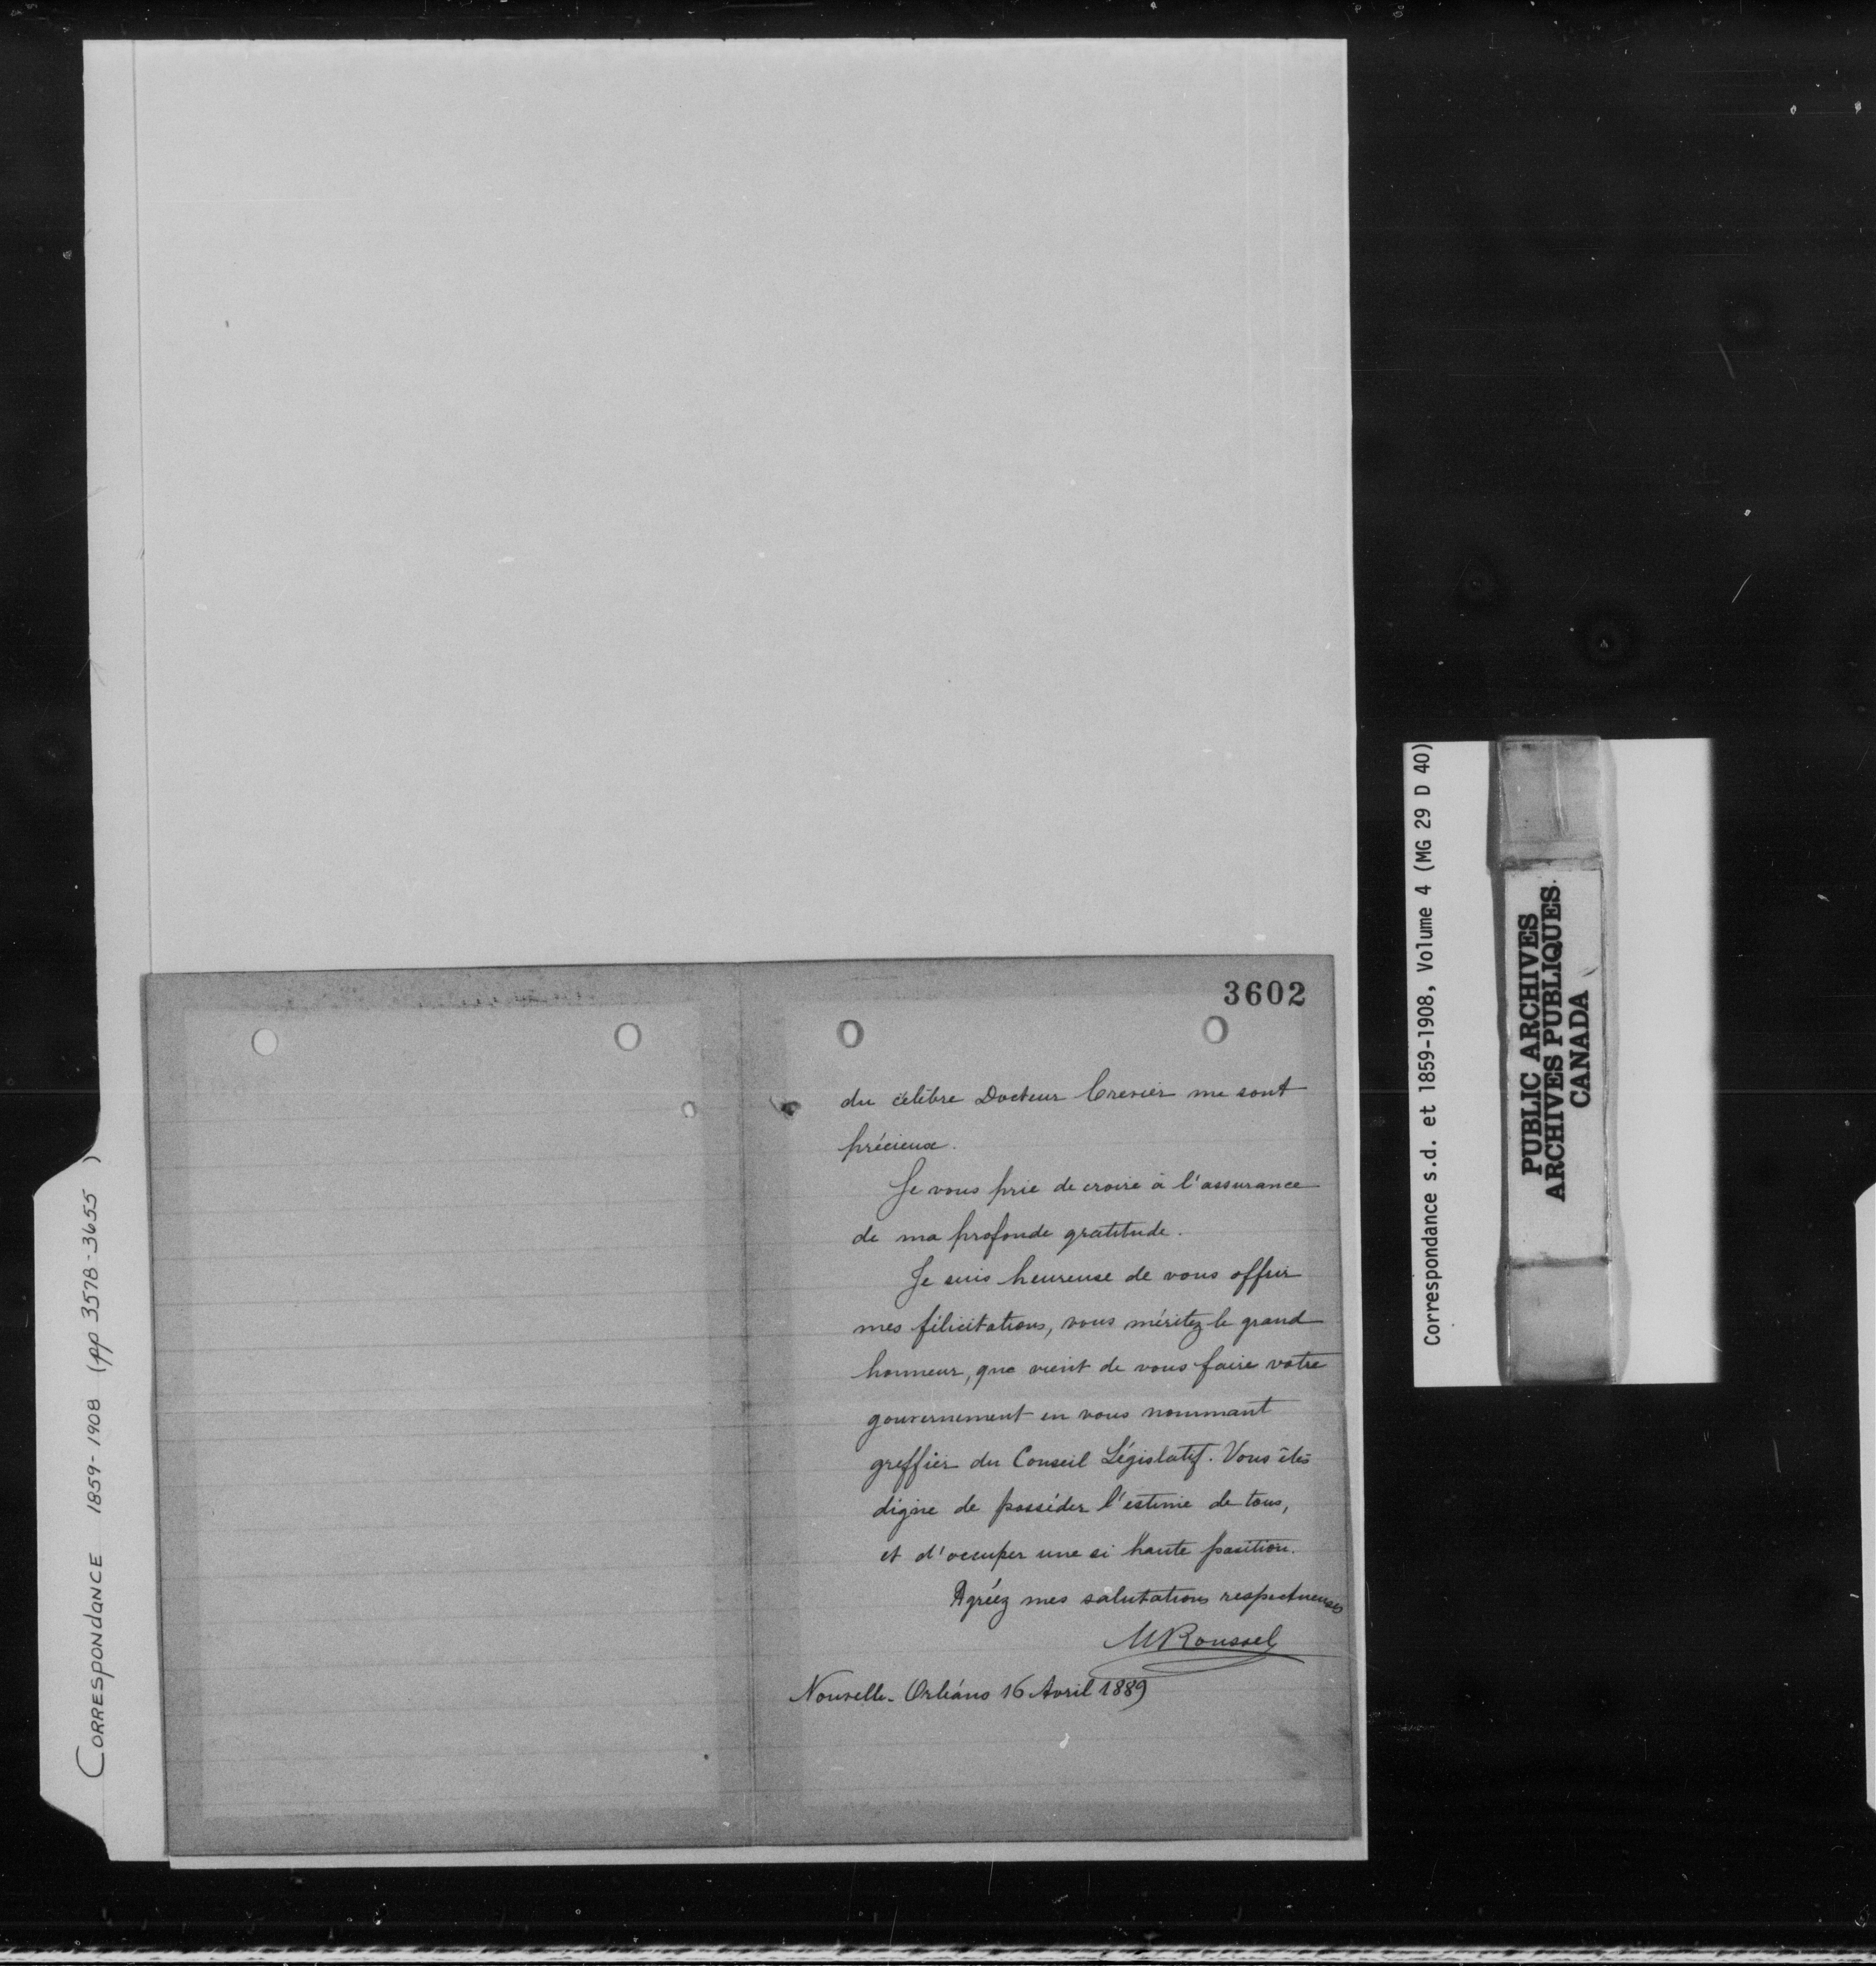 3602
du célèbre Docteur Crevier me sont
précieux.
Je vous prie de croire à l'assurance
de ma profonde gratitude.
Je suis heureuse de vous offrir
mes félicitations, vous méritez le grand
honneur, que vient de vous faire votre
gouvernement en vous nommant
greffier du Conseil Législatif. Vous êtes
digne de posséder l'estime de tous,
et d'occuper une si haute position.
Agréez mes salutations respectueuses
M Roussel
Nouvelle-Orléans 16 Avril 1889
CORRESPONDANCE 1859-1908 (pp 3578-3655)
Correspondance s.d. et 1859-1908, Volume 4 (MG 29 D 40)
PUBLIC ARCHIVES
ARCHIVES PUBLIQUES
CANADA